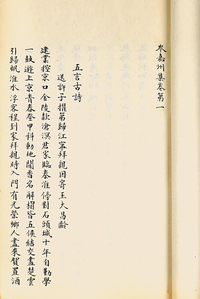 岑嘉州集卷第一
五言古詩
送許子擢第歸江寧拜親因寄王大昌齡
建業控京口金陵欵滄溟君家臨秦淮傍對石頭城十年自勤學
一鼓遊上京青春登甲科動地聞香名解榻皆五侯結交盡時英
引歸帆淮水浮客程到家拜親時入門有光榮鄉人盡來賀置酒